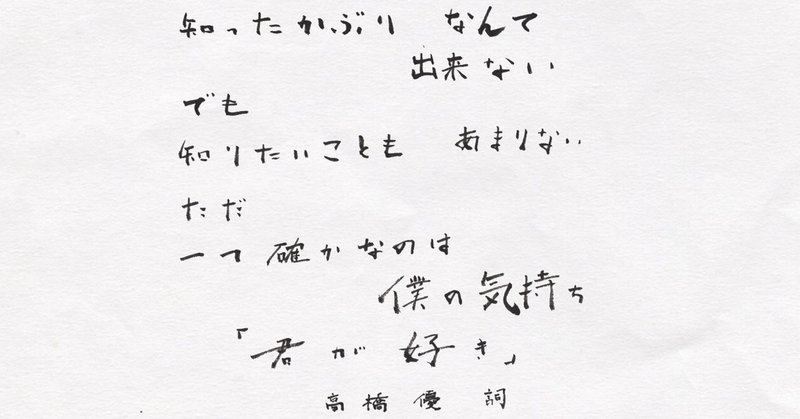 知ったかぶり なんて
出来ない
でも
知りたいことも あまりない
ただ
一つ確かなのは
僕の気持ち
「君が好き」
高橋優 詞